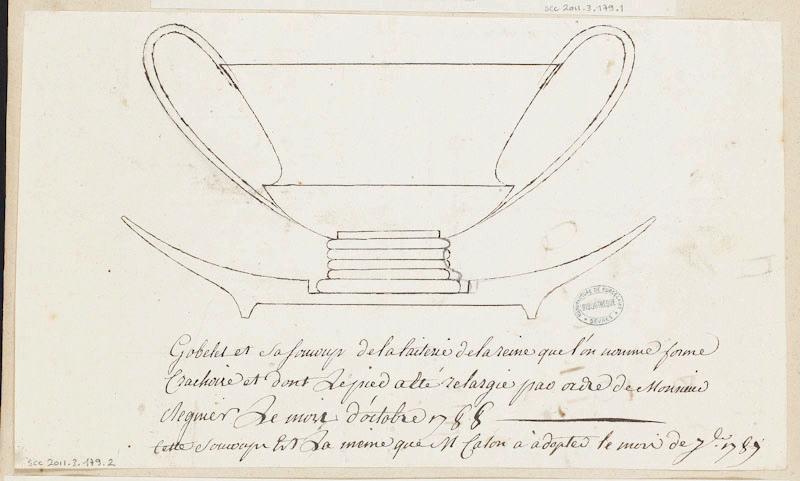 scc 2011.3.179.1
MANUFACTURE DE PORCELAINE
BIBLIOTHEQUE
SEVRES
Gobelet et sa soucoup de la laiterie de la reine que l'on nomme forme
Crachoire et dont Le pied a été relargie par ordre de Monsieur
Regnier Le mois d'octobre 1788
Cette Soucoupe Est La meme que Mr Caton a adoptée le mois de 7bre 1787
scc 2011.3.179.2